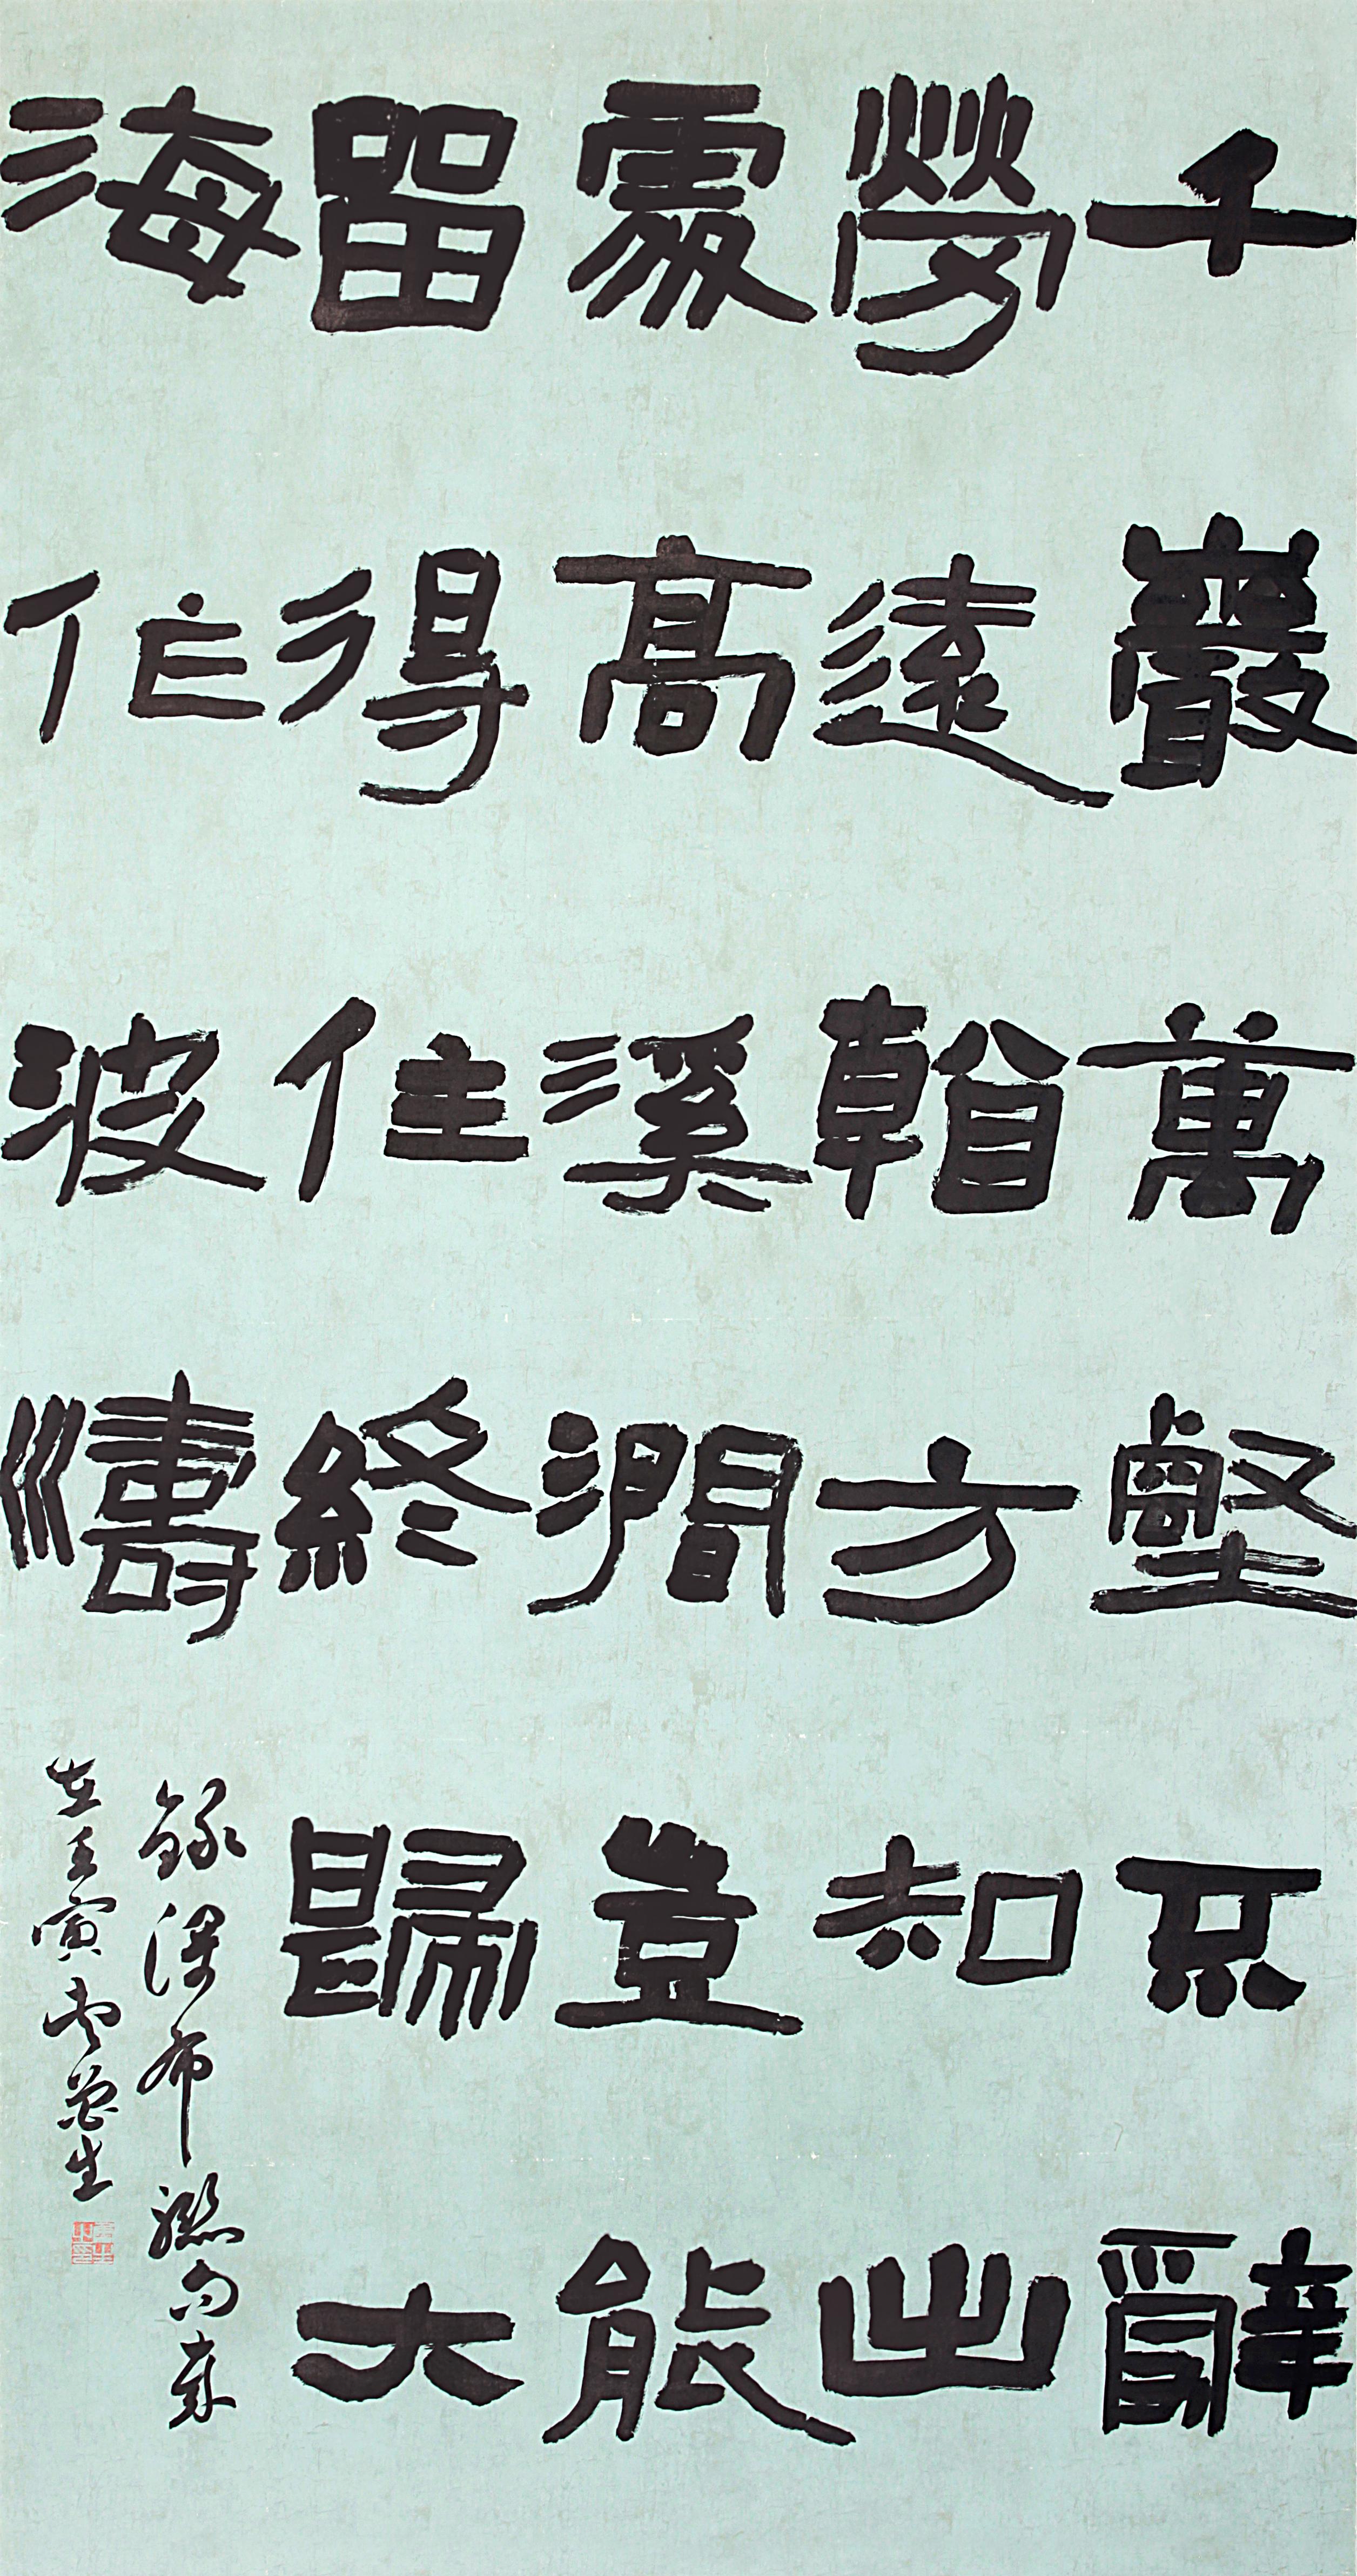 千巖萬壑不辭
勞遠看方知出
處高溪澗豈能
留得住終歸大
海作波濤
錄瀑布聯句歲
在壬寅生